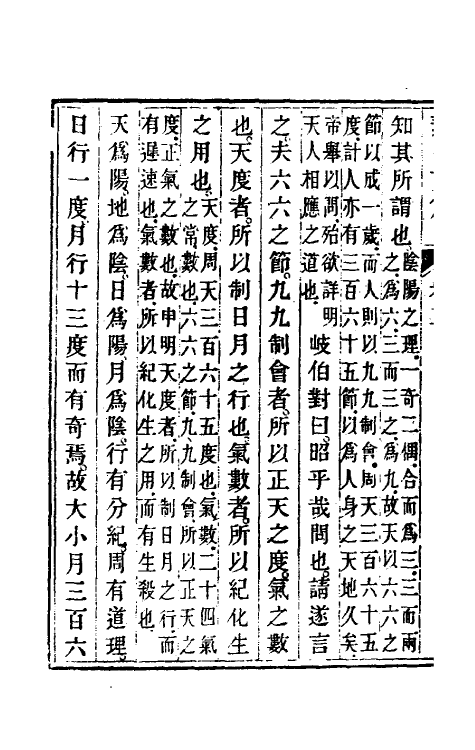 知其所謂也。陰陽之理。一奇二偶。合而爲三。三而兩
之。爲六。三而三之。爲九。故天以六六之
節以成一歲。而人則以九九制會。周天三百六十五
度。計人亦有三百六十五節。以爲人身之天地久矣。
帝舉以問。殆欲詳明
天人相應之道也。
岐伯對曰。昭乎哉問也。請遂言
之。夫六六之節。九九制會者。所以正天之度。氣之數
也。天度者。所以制日月之行也。氣數者。所以紀化生
之用也。天度。周天三百六十五度也。氣數。二十四氣
之常數也。六六之節。九九制會。所以正天之
度。正氣之數也。故申明天度者。所以制日月之行。而
有遲速也。氣數者。所以紀化生之用。而有生殺也。
天爲陽。地爲陰。日爲陽。月爲陰。行有分紀。周有道理。
日行一度。月行十三度而有奇焉。故大小月三百六